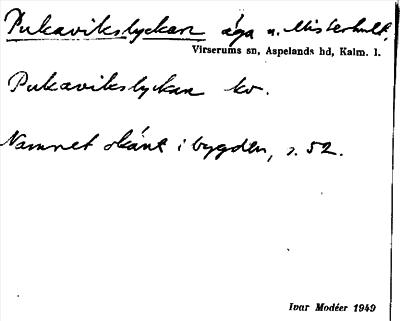 Pukavikslyckan äga u. Misterhult.
Virserums sn, Aspelands hd, Kalm. l.
Pukavikslyckan kv.
Namnet okänt i bygden, s. 52.
Ivar Modéer 1949